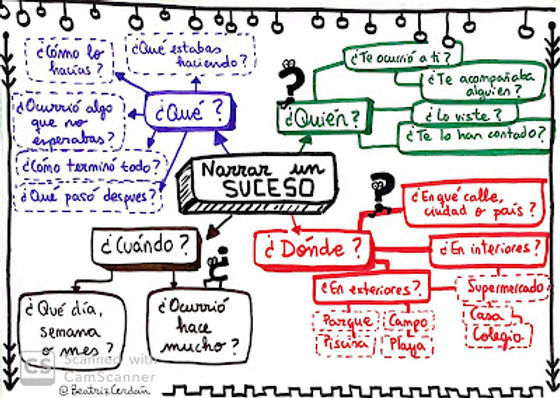 ¿Cómo lo
hacías?
¿Qué estabas
haciendo?
¿Ocurrió algo
que no
esperabas?
¿Qué?
¿Cómo terminó todo?
¿Qué pasó después?
¿Quién?
¿Te ocurrió a ti?
¿Te acompañaba
alguien?
¿Lo viste?
¿Te lo han contado?
Narrar un
SUCESO
¿Cuándo?
¿Qué día,
semana
o mes?
¿Ocurrió
hace
mucho?
¿Dónde?
¿En qué calle,
ciudad o país?
¿En interiores?
Supermercado
Casa
Colegio
¿En exteriores?
Parque
Campo
Piscina
Playa
CS
Scanned with
CamScanner
@BeatrizCerdán